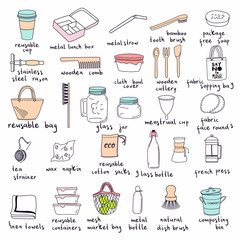 reusable
cup
metal lunch box
metal straw
bamboo
tooth brush
package
free soap
stainless
steel razor
wooden comb
cloth bowl
cover
wooden
cutlery
SAY
NO
fabric
sopping bag
reusable bag
glass jar
menstrual cup
fabric
face rounds
tea
strainer
wax napkin
eco
reusable
cotton sacks
glass bottle
french press
linen towels
reusable
containers
mesh
market bag
metal
bottle
natural
dish brush
composting
bin